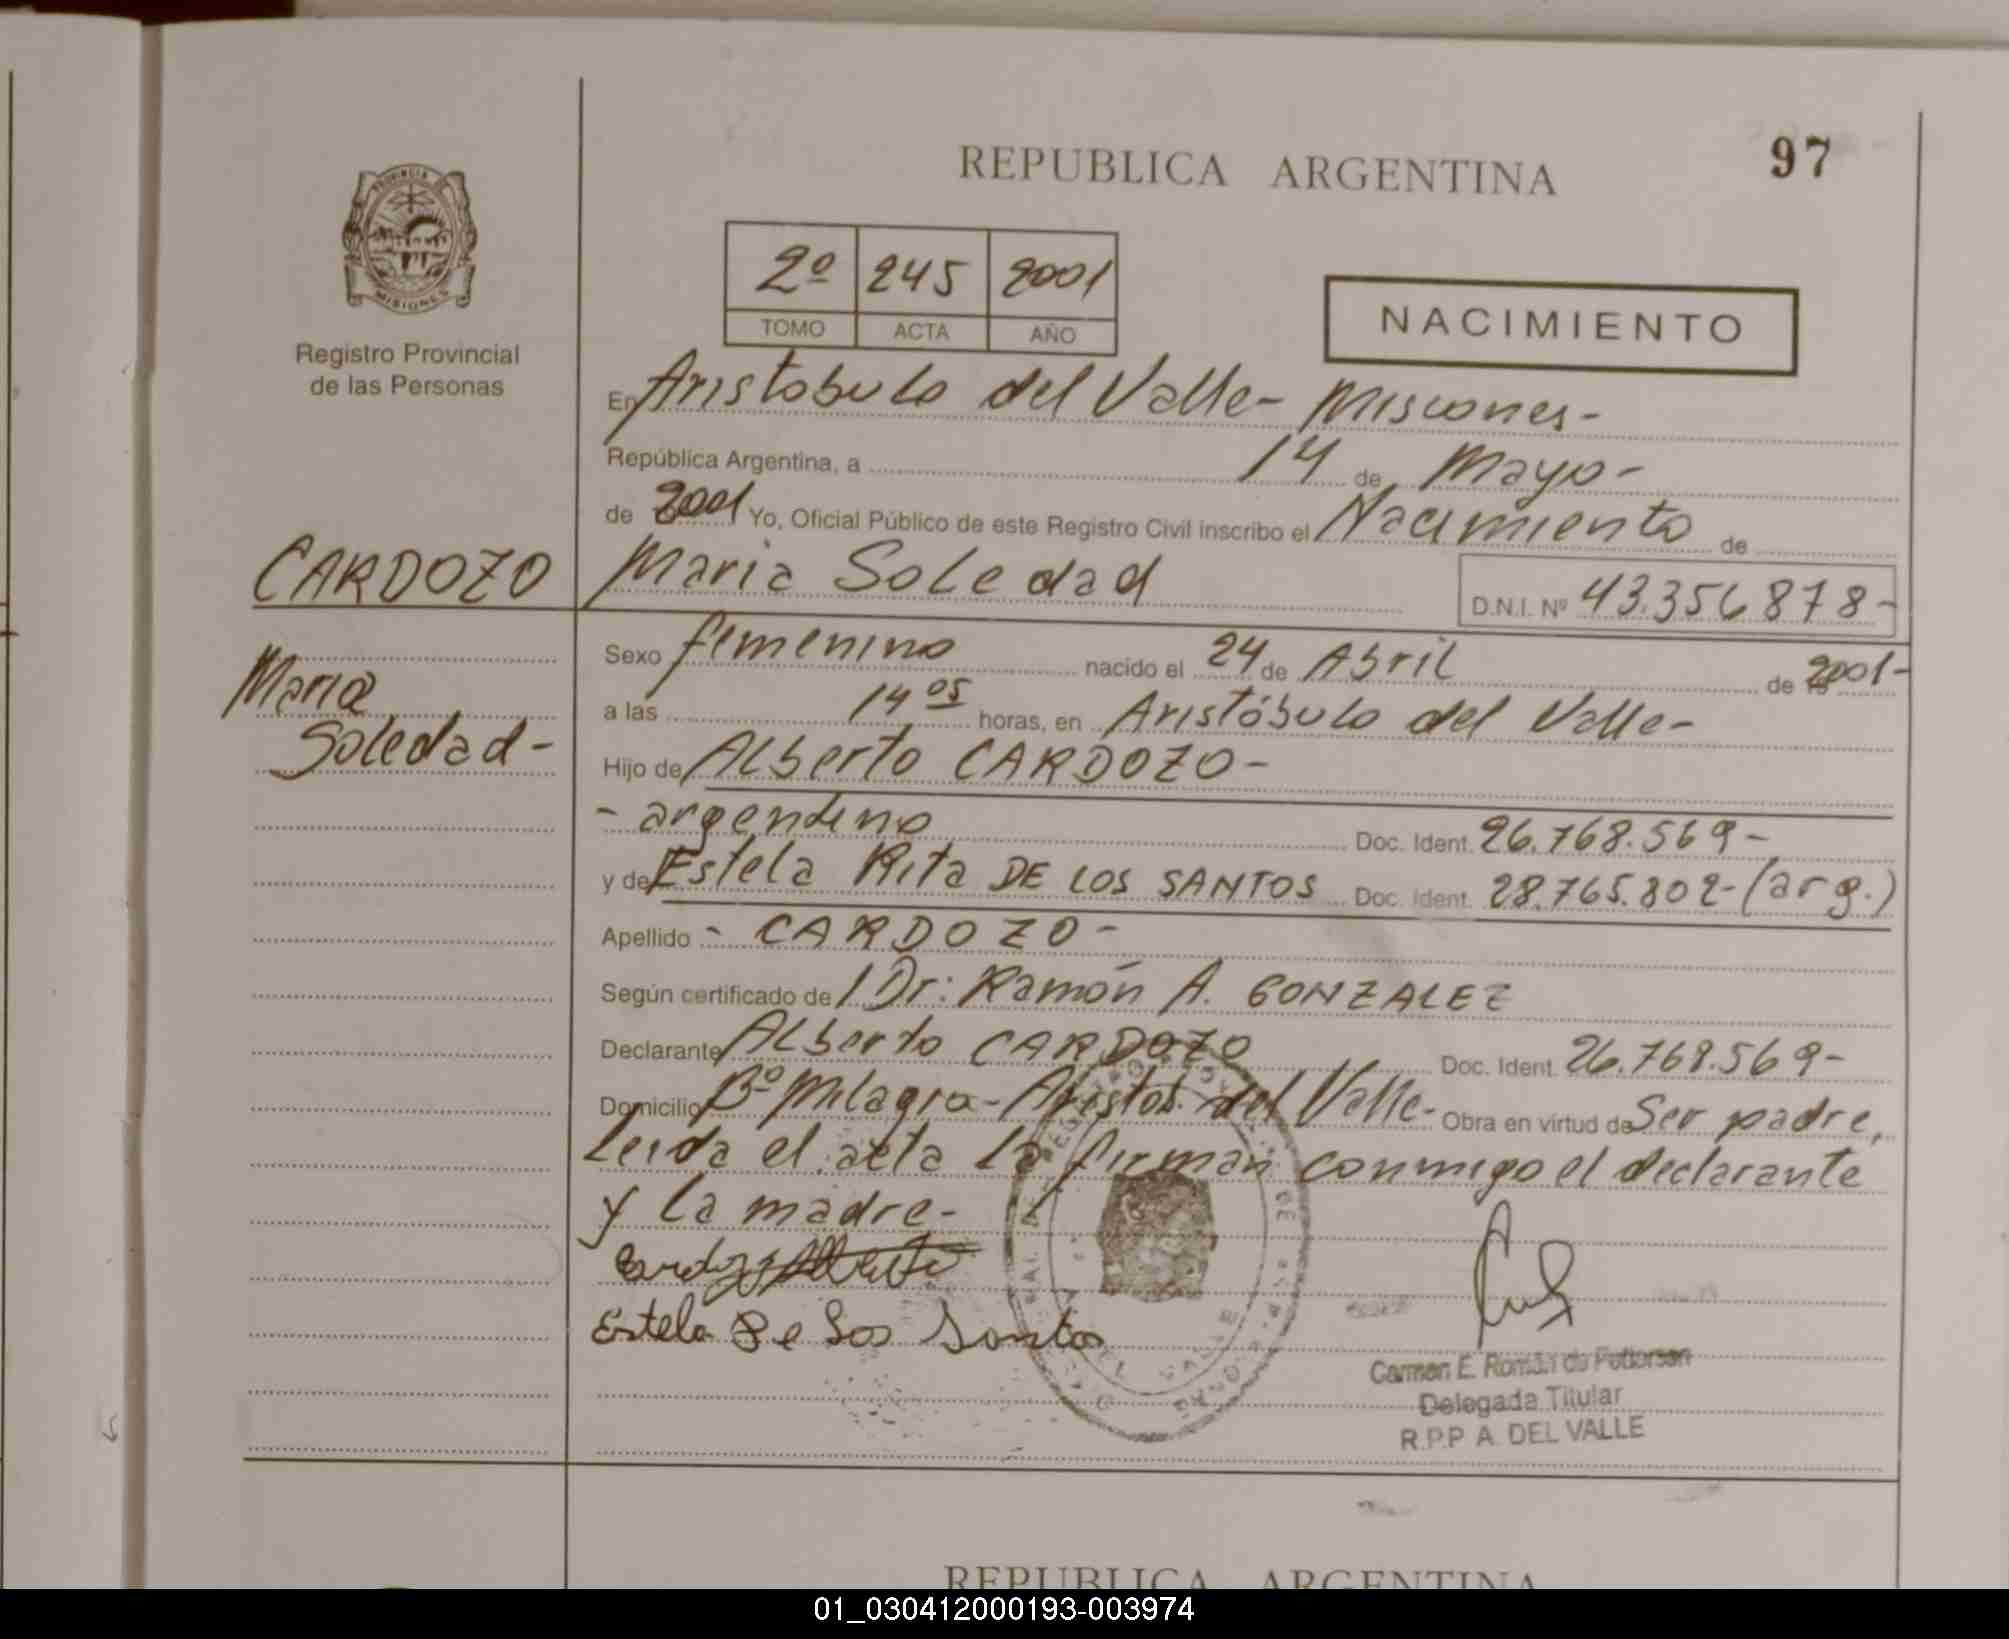 REPUBLICA ARGENTINA
97
PROVINCIA DE
MISIONES
Registro Provincial
de las Personas
2º 245 2001
TOMO ACTA AÑO
NACIMIENTO
En Aristobulo del Valle - Misiones -
República Argentina, a 14 de Mayo -
de 2001 Yo, Oficial Público de este Registro Civil inscribo el Nacimiento de
CARDOZO
Maria Soledad -
Maria Soledad D.N.I. Nº 43.356.878 -
Sexo femenino nacido el 24 de Abril de 2001 -
a las 14 05 horas, en Aristóbulo del Valle -
Hijo de Alberto CARDOZO -
- argentino Doc. Ident. 26.768.569 -
y de Estela Rita DE LOS SANTOS Doc. Ident. 28.765.802 - (arg.)
Apellido - CARDOZO -
Según certificado de / Dr: Ramón A. GONZALEZ
Declarante Alberto CARDOZO Doc. Ident. 26.768.569 -
Domicilio Bº Milagro - Aristob. del Valle - Obra en virtud de Ser padre,
Leida el acta la firman conmigo el declarante
y la madre -
Cardozo Alberto
Estela De Los Santos
DEL VALLE
Carmen E. Román de
Delegada Titular
R.P.P A. DEL VALLE
REPUBLICA ARGENTINA
01_030412000193-003974